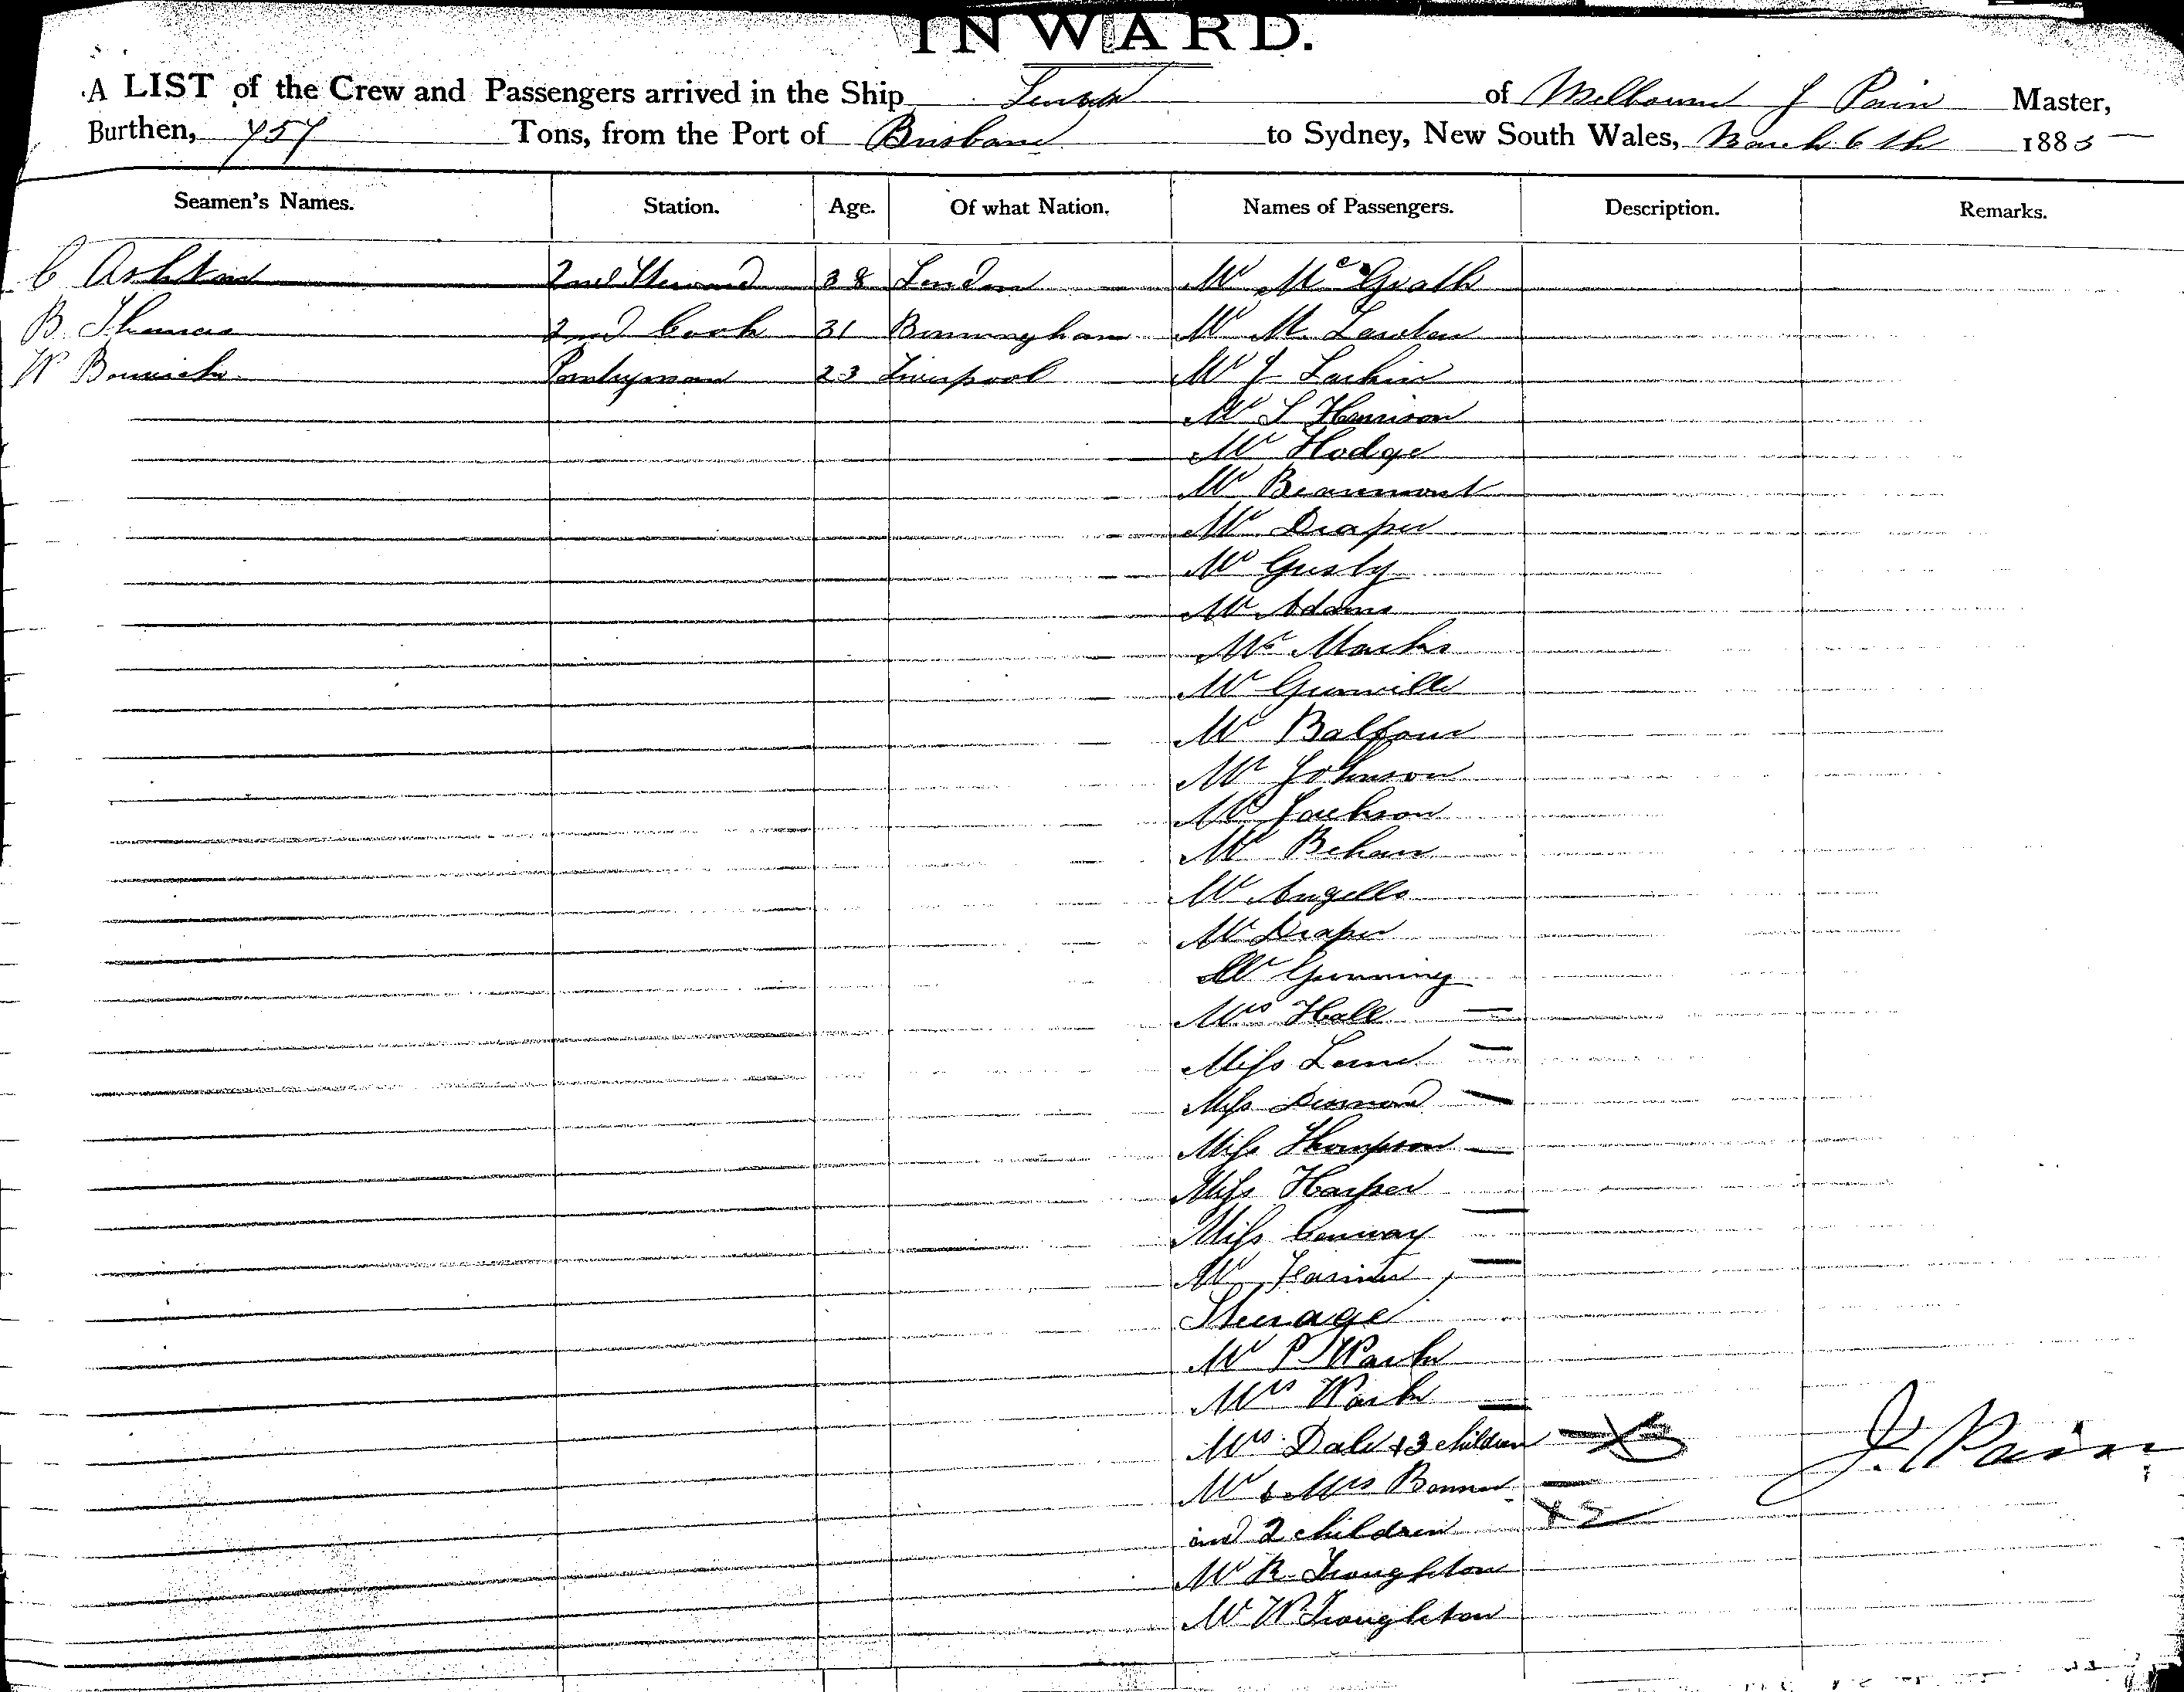 INWARD.
A LIST of the Crew and Passengers arrived in the Ship of Melbourne J Pain Master,
Burthen, 757 Tons, from the Port of Brisbane to Sydney, New South Wales, March 6th 1885
Seamen's Names. Station. Age. Of what Nation. Names of Passengers. Description. Remarks.
C Ashton 2nd Steward 38 London Mr McGrath
B. Thomas 2nd Cook 31 Birmingham Mr M.
W Pantryman 23 Liverpool Mr J Larkin
Mr S Harrison
Mr Hodge
Mr Beaumont
Mr Draper
Mr
Mr Adams
Mr Marks
Mr
Mr Balfour
Mr Johnson
Mr Jackson
Mr Behan
Mr Angells
Mr Draper
Mr Gunning
Mrs Hall
Miss
Miss
Miss Thompson
Miss Harper
Miss Conway
Mr
Steerage
Mr P
Mrs
Mrs Dale + 3 children
Mr & Mrs
and 2 children
Mr R Troughton
Mr W Troughton
J. Pain